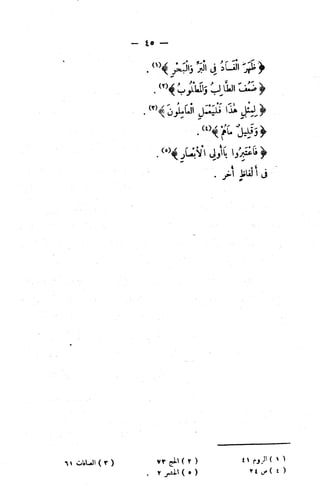 — ٤٥ —
﴿ ظَهَرَ الفَسَادُ فِى الْبَرِّ وَالْبَحْرِ ﴾(١) .
﴿ ضَعُفَ الطَّالِبُ وَالمَطْلُوبُ ﴾(٢) .
﴿ لِمِثْلِ هٰذَا فَلْيَعْمَلِ الْعَامِلُونَ ﴾(٣) .
﴿ وَقَلِيلٌ مَاهُمْ ﴾(٤) .
﴿ فَاعْتَبِرُوا يَاأُولِى الْأَبْصَارِ ﴾(٥) .
فى ألفاظٍ أخر .
(١) الروم ٤١ (٢) الحج ٧٣ (٣) الصافات ٦١
(٤) ص ٢٤ (٥) الحشر ٢ .